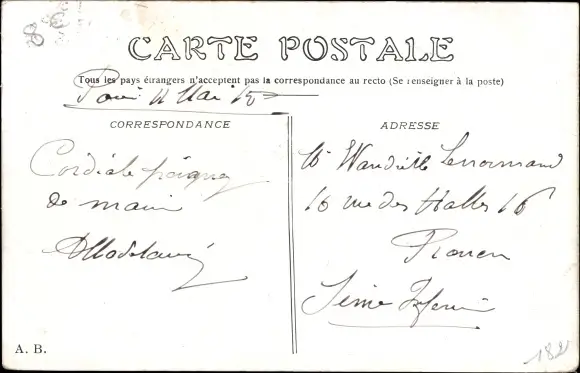 CARTE POSTALE
Tous les pays étrangers n'acceptent pas la correspondance au recto (Se renseigner à la poste)
Mai
CORRESPONDANCE
Cordiale poignée
de main
ADRESSE
Lenormand
16 rue des Halles 16
Rouen
Seine Inferie
A. B.